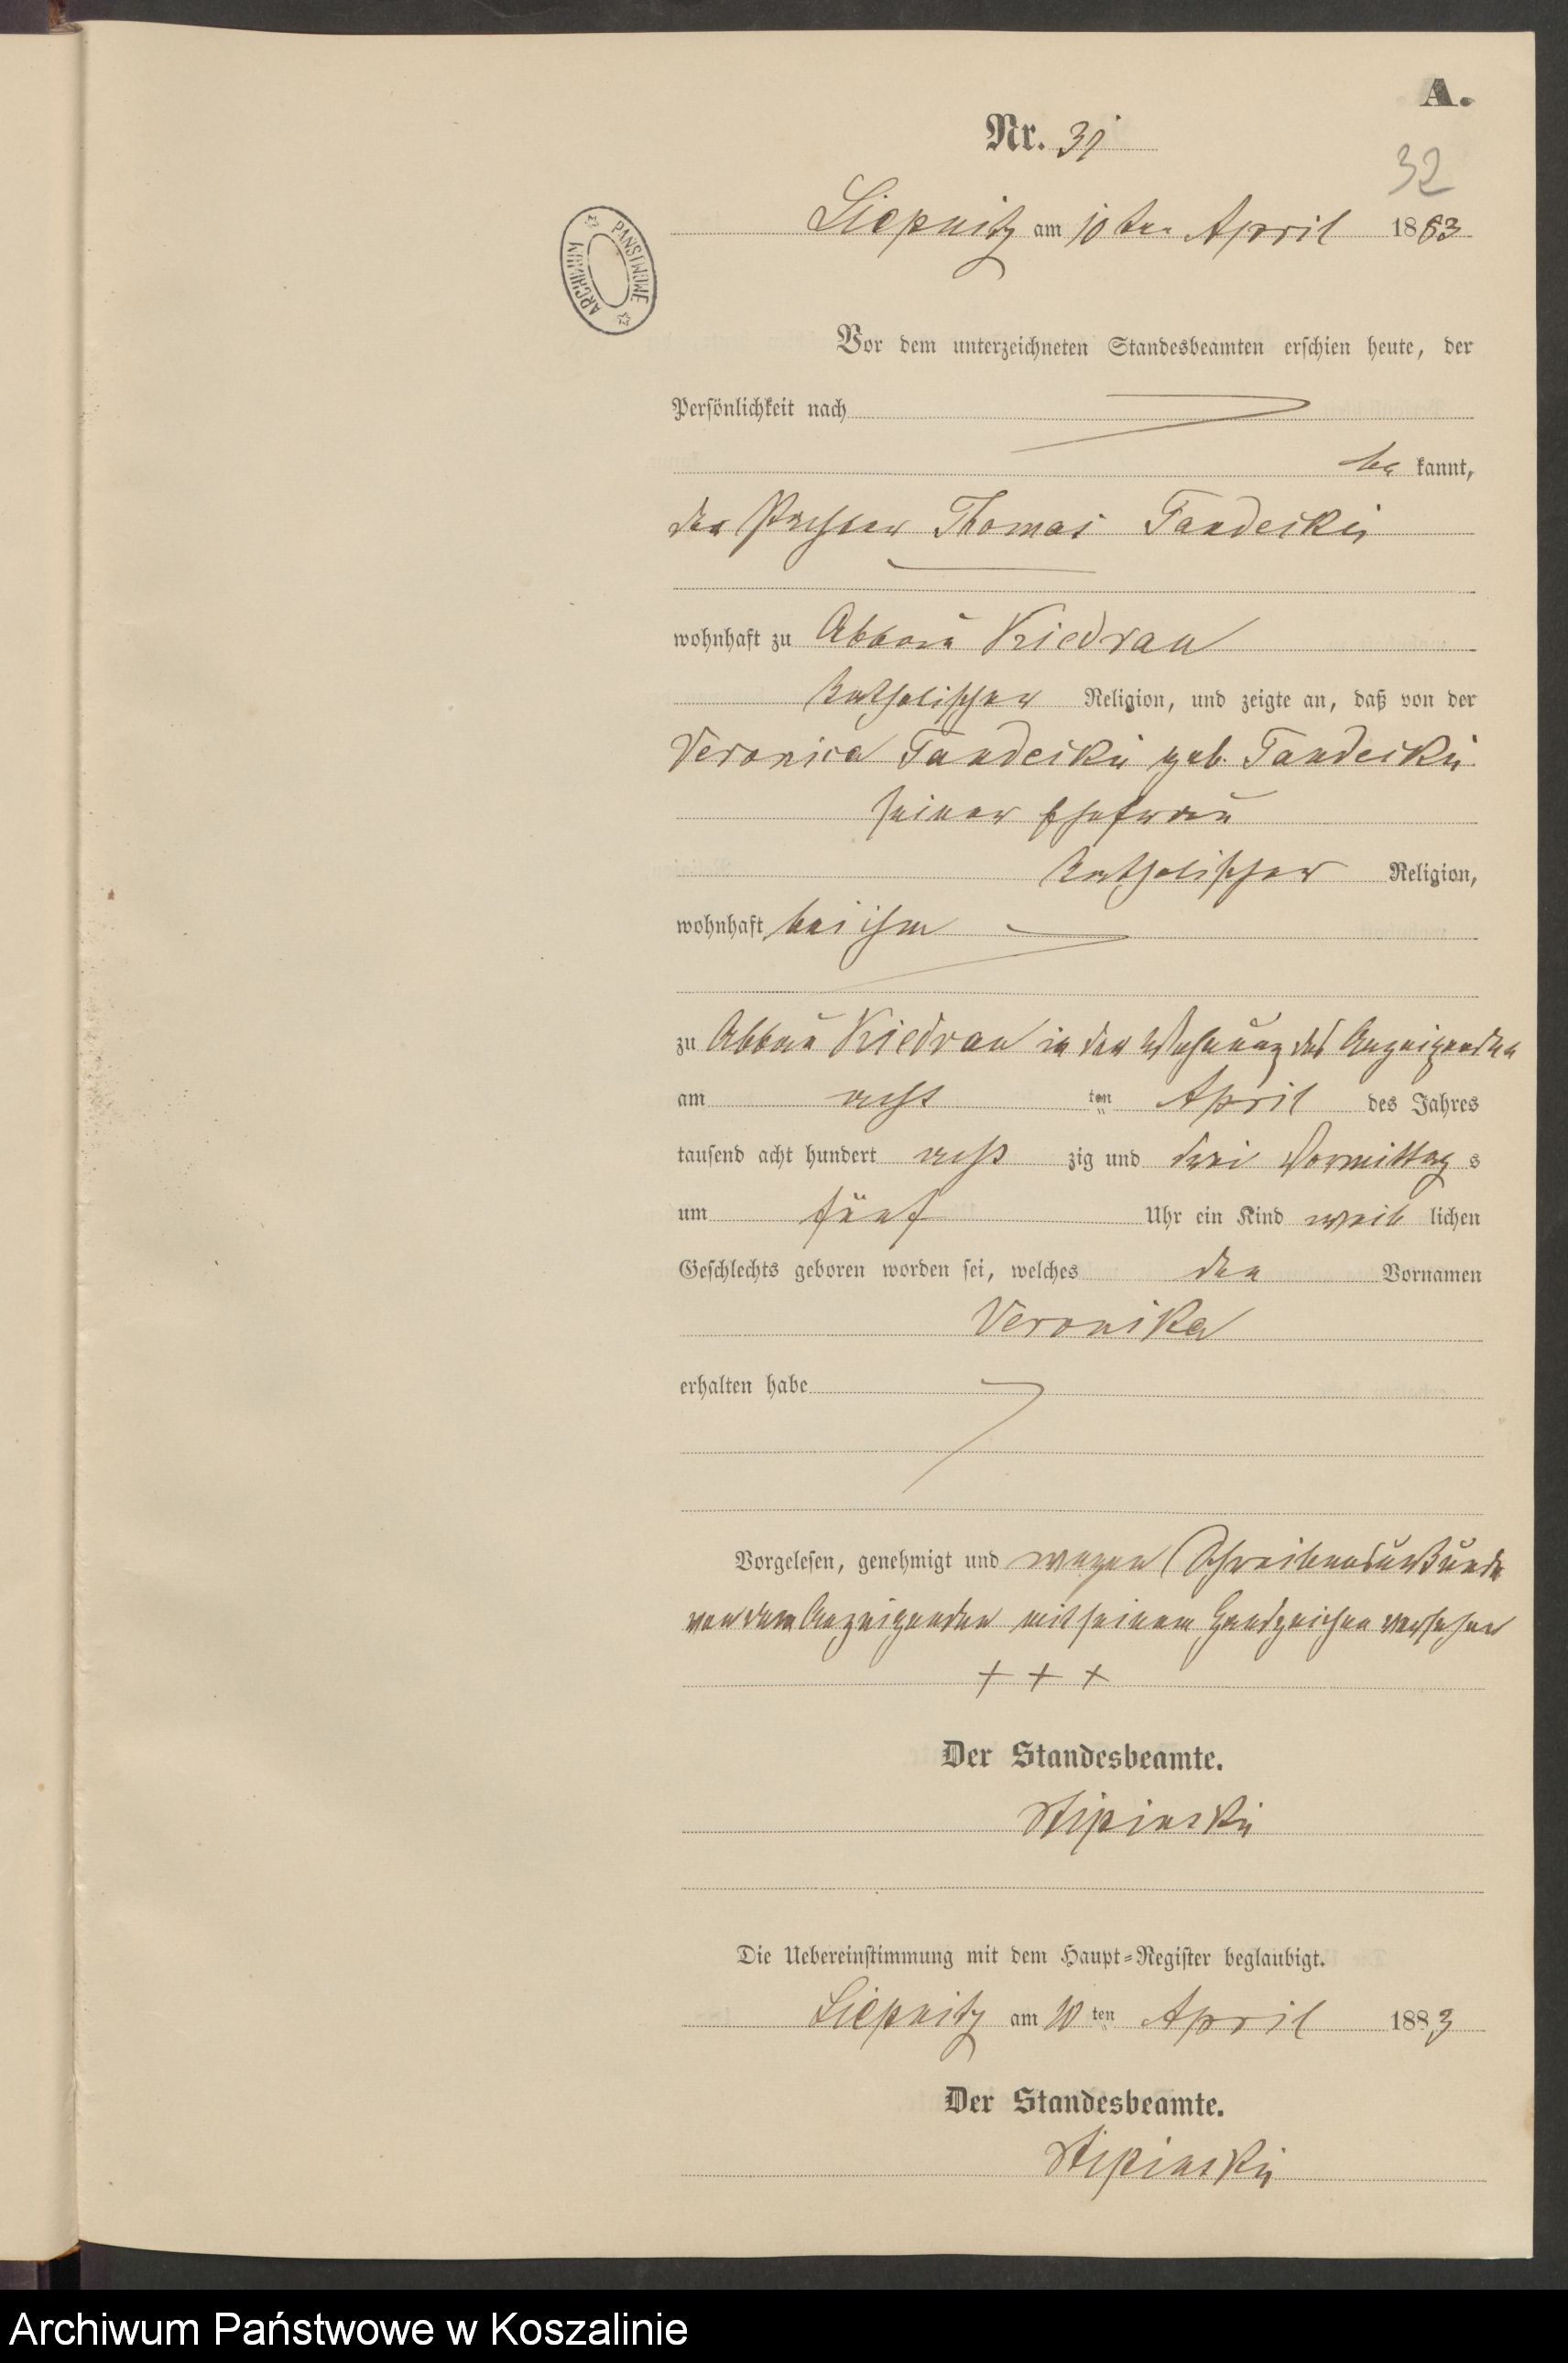 A.
Nr. 31
32
Liepnitz am 10ten April 1883
ARCHIWUM PAŃSTWOWE
Vor dem unterzeichneten Standesbeamten erschien heute, der
Persönlichkeit nach
be kannt,
der Pächter Thomas Tandecki
wohnhaft zu Abbau Kiedrau
katholischer Religion, und zeigte an, daß von der
Veronica Tandecki geb. Tandecki
seiner Ehefrau
katholischer Religion,
wohnhaft bei ihm
zu Abbau Kiedrau in der Wohnung des Anzeigenden
am acht ten April des Jahres
tausend acht hundert acht zig und drei Vormittag s
um fünf Uhr ein Kind weib lichen
Geschlechts geboren worden sei, welches den Vornamen
Veronika
erhalten habe
Vorgelesen, genehmigt und wegen Schreibensunkunde
von dem Anzeigenden mit seinem Handzeichen versehen
+ + +
Der Standesbeamte.
Die Uebereinstimmung mit dem Haupt-Register beglaubigt.
Liepnitz am 10 ten April 1883
Der Standesbeamte.
Archiwum Państwowe w Koszalinie